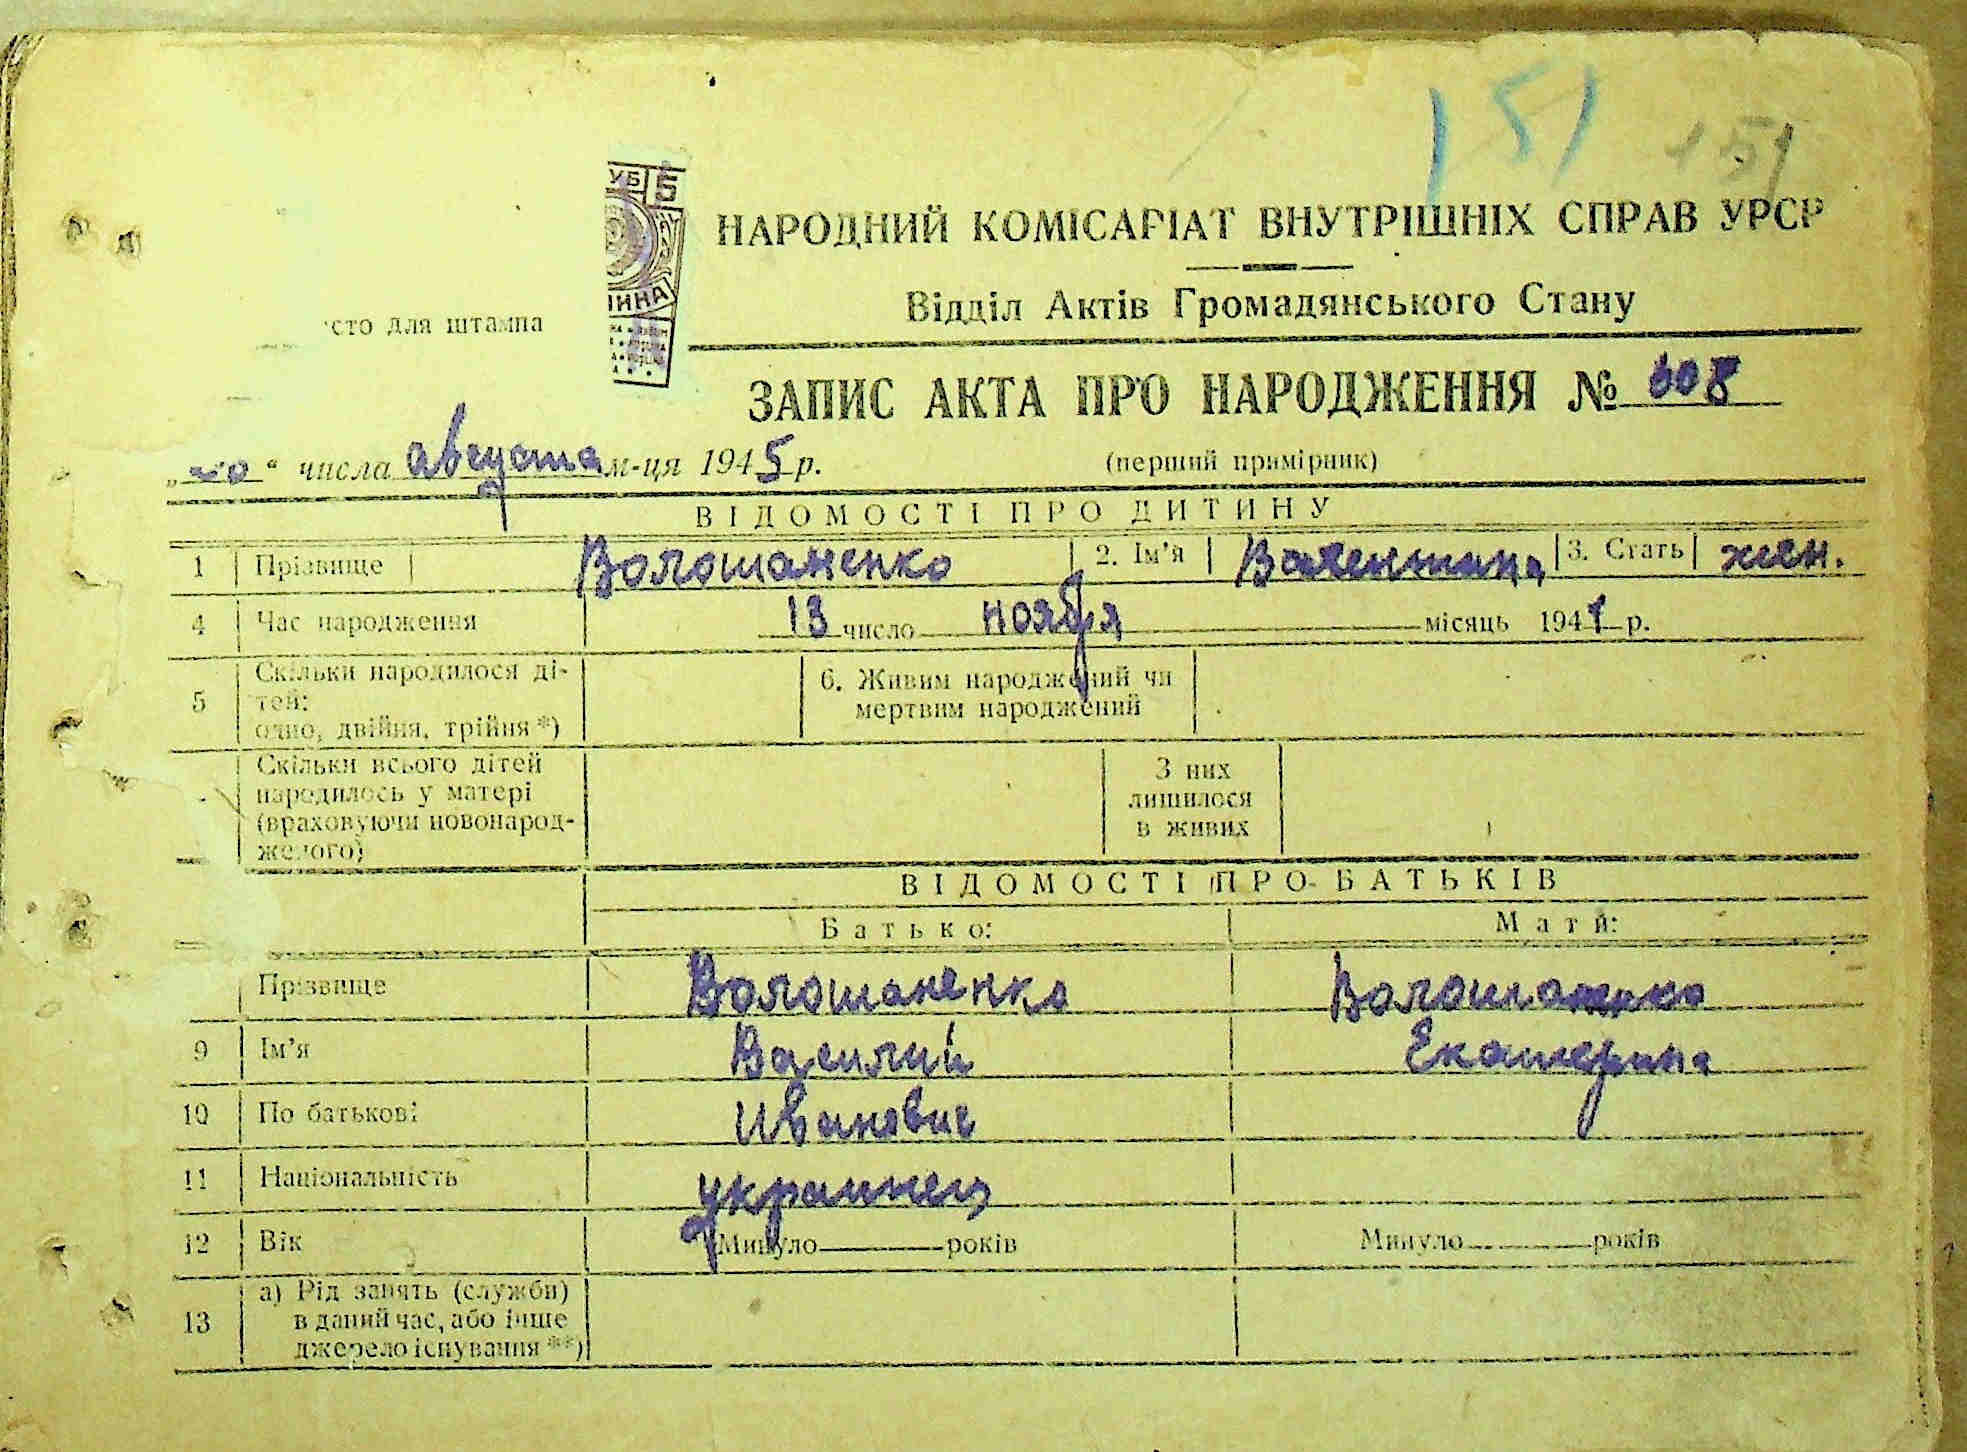 151 151
УБ 5
НАРОДНИЙ КОМІСАРІАТ ВНУТРІШНІХ СПРАВ УРСР
Відділ Актів Громадянського Стану
для штампа
ЗАПИС АКТА ПРО НАРОДЖЕННЯ № 608
числа августа м-ця 1945 р. (перший примірник)
ВІДОМОСТІ ПРО ДИТИНУ
1 Прізвище Волошаненко 2. Ім'я Валентина 3. Стать жен.
4 Час народження 13 число ноября місяць 1941 р.
5 Скільки народилося ді-
тей:
одно, двійня, трійня *)
6. Живим народжений чи
мертвим народжений
Скільки всього дітей
народилось у матері
(враховуючи новонарод-
женого)
З них
лишилося
в живих
ВІДОМОСТІ ПРО БАТЬКІВ
Батько: Мати:
Прізвище Волошаненко Волошаненко
9 Ім'я Василий Екатерина
10 По батькові Иванович
11 Національність украинец
12 Вік Минуло років Минуло років
13 а) Рід занять (служби)
в даний час, або інше
джерело існування **)